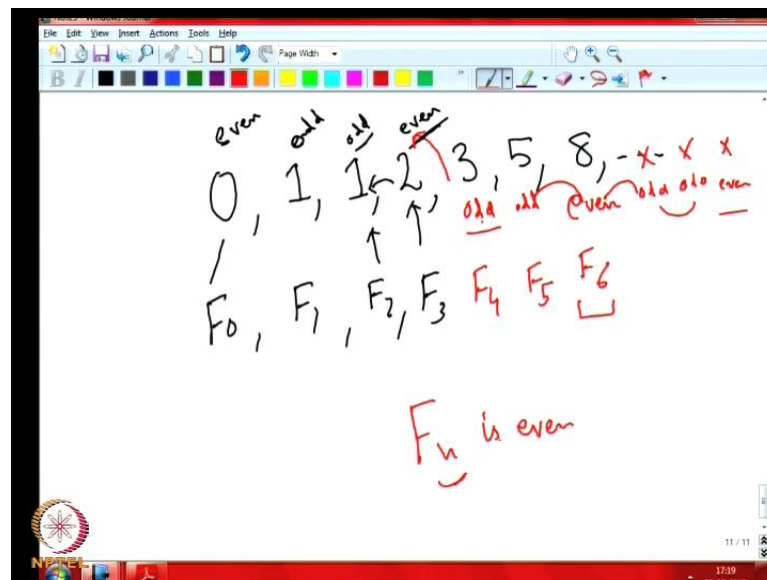 File Edit View Insert Actions Tools Help
Page Width
B I
even odd odd even
0, 1, 1, 2, 3, 5, 8, -x- x x
odd odd even odd odd even
F0, F1, F2, F3 F4 F5 F6
Fn is even
NPTEL
11 / 11
17:19